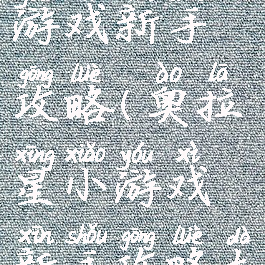 游戏新手
gōng lüè ào lā
攻略(奥拉
xīng xiǎo yóu xì
星小游戏
xīn shǒu gōng lüè dà
新手攻略大